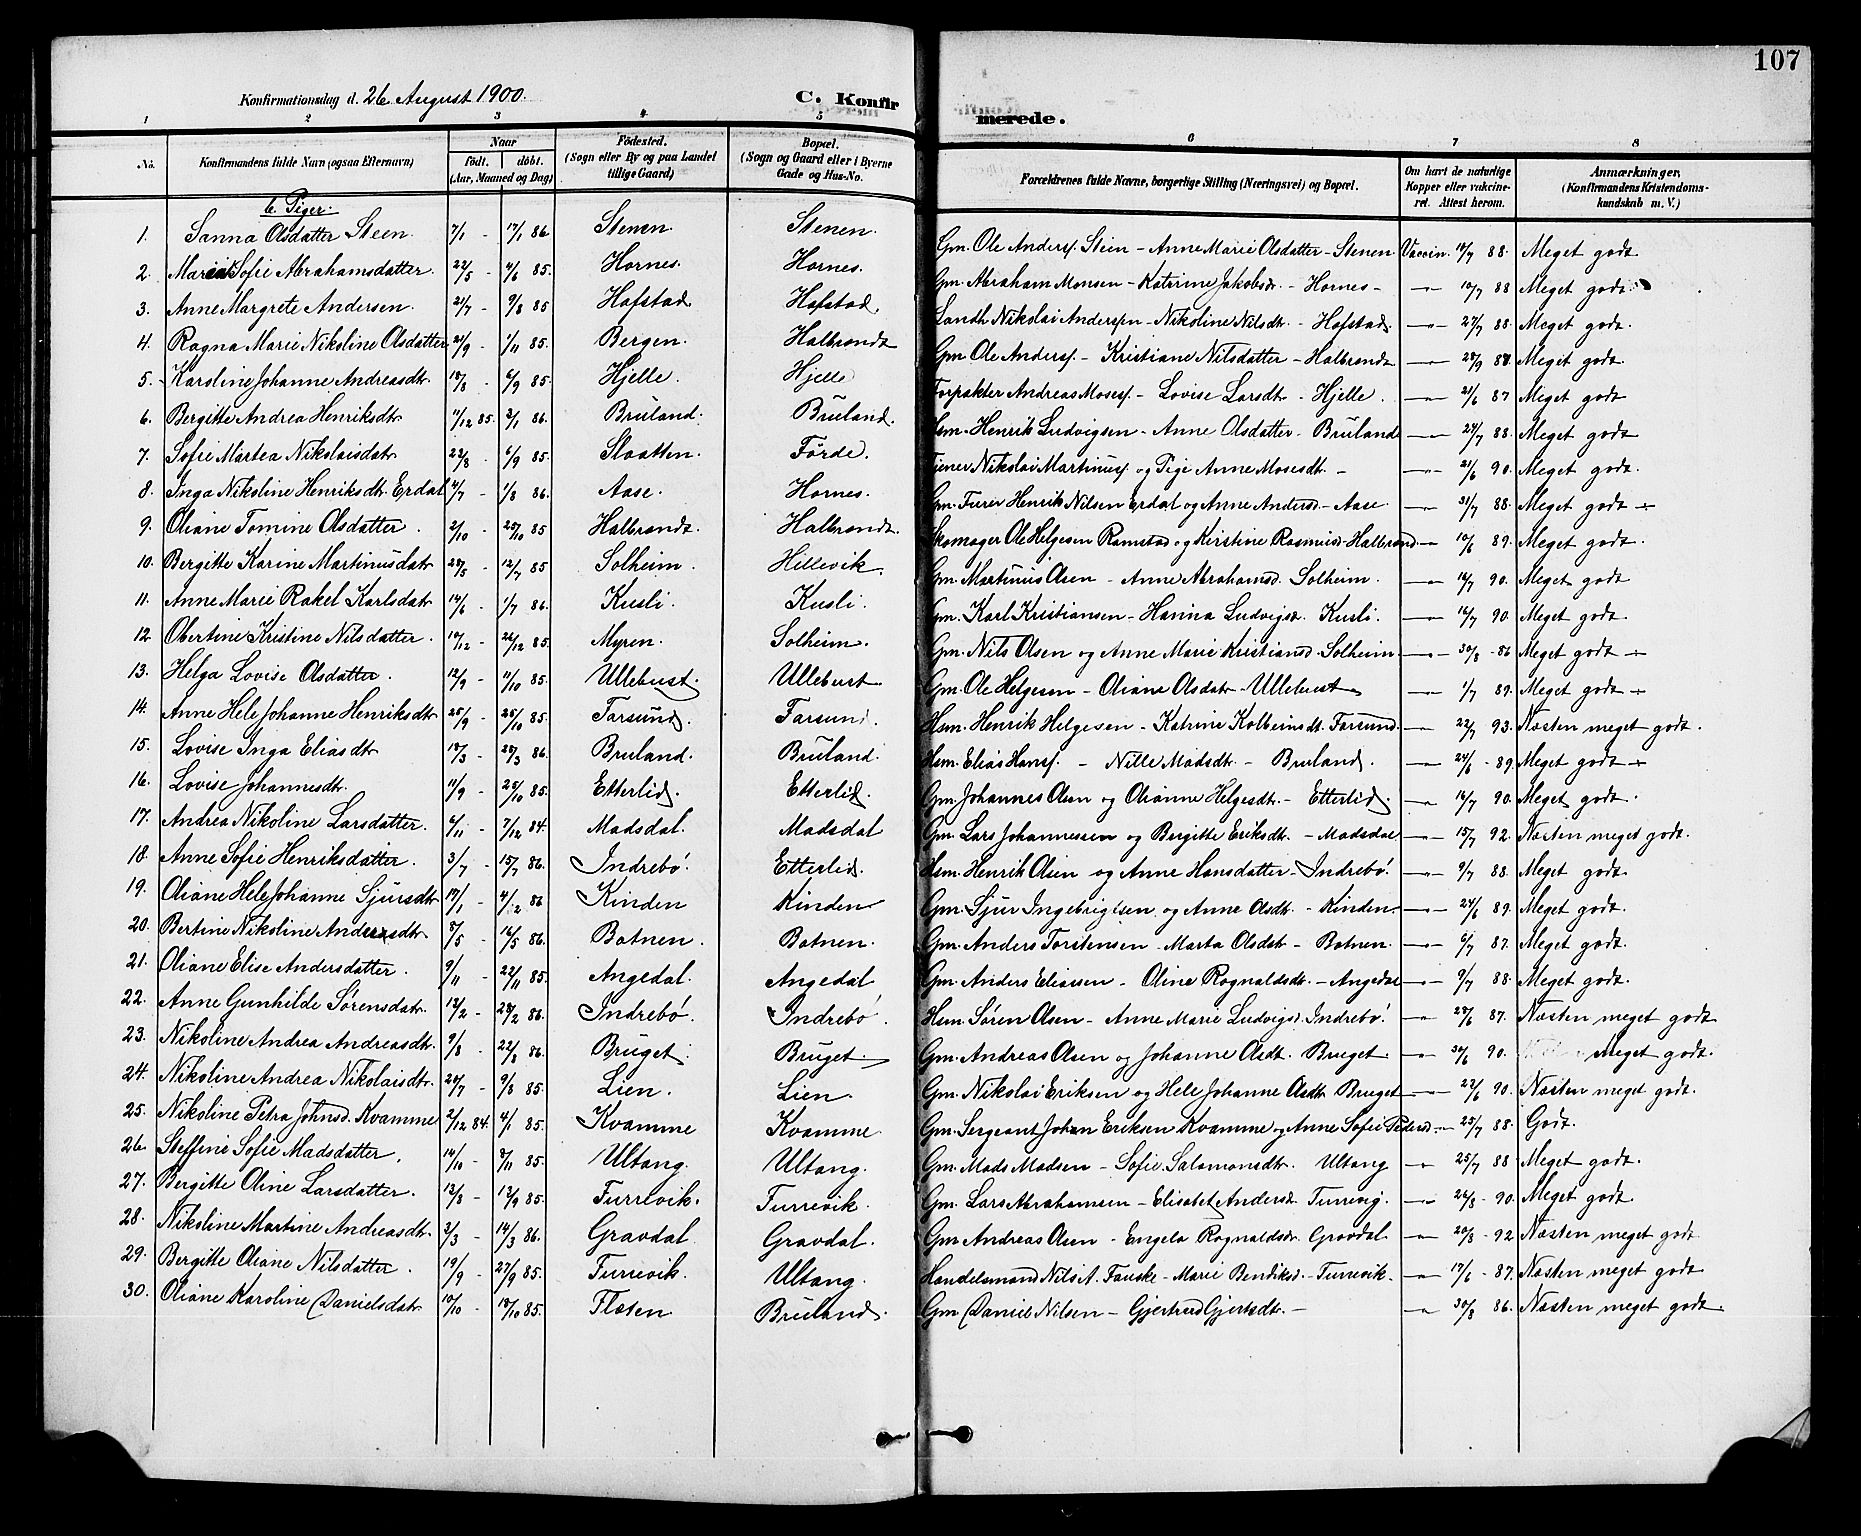 107
Konfirmationsdag d. 26 August 1900. C. Konfirmerede.
1 2 3 4 5 6 7 8
No. Konfirmandens fulde Navn (ogsaa Efternavn) Naar født. døbt. (Aar, Maaned og Dag) Fødested. (Sogn eller By og paa Landet tillige Gaard) Bopæl. (Sogn og Gaard eller i Byerne Gade og Hus-No. Forældrenes fulde Navne, borgerlige Stilling (Næringsvei) og Bopæl. Om havt de naturlige Kopper eller vakcineret. Attest herom. Anmærkninger. (Konfirmandens Kristendomskundskab m. V.)
b. Piger.
1. Sanna Olsdatter Steen 7/1 - 17/1 86 Stenen Stenen. Gm. Ole Anders. Steen - Anne Marie Olsdatter - Stenen Vaccin. 14/7 88. Meget godt
2. Sofie Abrahamsdatter. 22/5 - 4/6 85. Hornes. Hornes. Gm. Abraham Monsen - Katrine Jakobsdr. - Hornes - -"- 10/7 88 Meget godt
3. Anne Margrete Andersen. 21/7 - 9/8 85 Hafstad Hafstad. Landh. Nikolai Andersen - Nikoline Nilsdt. - Hafstad. -"- 27/7 88. Meget godt.
4. Ragna Marie Nikoline Olsdatter 21/9 - 1/11 85. Bergen. Halbrendt Gm. Ole Anders. - Kristiane Nilsdatter - Halbrendt -"- 28/9 88 Meget godt
5. Karoline Johanne Andreasdt. 18/8 - 6/9 85. Hjelle. Hjelle Forpakter Andreas Moses. - Lovise Larsdt - Hjelle. -"- 21/6 87 Meget godt
6. Bergitte Andrea Henriksdt 11/12 85. 3/1 86. Bruland. Bruland. Hsm. Henrik Ludvigsen - Anne Olsdatter - Bruland -"- 24/7 88. Meget godt
7. Sofie Martea Nikolaisdatr 23/8 - 6/9 85. Slaatten. Förde. Tjener Nikolai Martinus. og Pige Anne Mosesdt. - -"- 21/6 90. Meget godt.
8. Inga Nikoline Henriksdt. Erdal 4/7 - 1/8 86. Aase. Hornes. Gm. Furer Henrik Nilsen Erdal og Anne Andersd. - Aase -"- 31/7 88. Meget godt
9. Oliane Tomine Olsdatter. 2/10 - 25/10 85 Halbrendt. Halbrendt. Skomager Ole Helgesen Ramstad og Kirstine Rasmusd - Halbrend. -"- 10/6 89. Meget godt.
10. Bergitte Karine Martinusdatr 28/5 - 12/7 85 Solheim. Hillevik. Gm. Martinus Olsen - Anne Abrahamsd. Solheim. -"- 14/7 90. Meget godt
11. Anne Marie Rakel Karlsdatr 14/6 - 1/7 86. Kusli. Kusli. Gm. Karl Kristiansen - Hanna Ludvigsd. Kusli. -"- 16/7 90. Meget godt
12. Obertine Kristine Nilsdatter. 10/12 - 26/12 85. Myren. Solheim. Gm. Nils Olsen og Anne Marie Kristiansd. Solheim. -"- 30/8 - 86 Meget godt
13. Helga Lovise Olsdatter. 12/9 - 11/10 85. Ullebust. Ullebust Gm. Ole Helgesen - Oliane Olsdatr Ullebust -"- 1/7 89. Meget godt
14. Anne Hele Johanne Henriksdt 25/9 - 25/10 85. Farsund. Farsund. Hsm. Henrik Helgesen - Katrine Kolbeinsdt. Farsund. -"- 22/7 93. Næsten meget godt.
15. Lovise Inga Eliasdt 18/3 - 28/3 86. Bruland. Bruland. Hsm. Elias Hans. - Nille Madsdt. - Bruland. -"- 24/6 - 89. Meget godt
16. Lovise Johannesdt. 11/9 - 25/10 85. Etterlid. Etterlid. Gm. Johannes Olsen og Olianne Helgesdt. - Etterlid. -"- 16/7 90. Meget godt.
17. Andrea Nikoline Larsdatter. 6/11 - 7/12 84. Madsdal. Madsdal Gm. Lars Johannessen og Bergitte Eriksdt. - Madsdal -"- 15/7 92. Næsten meget godt.
18. Anne Sofie Henriksdatter. 3/7 - 15/7 86. Indrebö. Etterlid. Hsm. Henrik Olsen og Anne Hansdatter - Indrebö. -"- 9/7 88. Meget godt
19. Oliane Hele Johanne Sjursdt 17/1 - 4/2 86 Kinden Kinden Gm. Sjur Ingebrigtsen og Anne Olsdt. - Kinden -"- 24/6 89. Meget godt.
20. Bertine Nikoline Andersdt 8/5 - 16/5 86. Botnen. Botnen. Gm. Anders Torstensen - Marta Olsdat - Botnen. -"- 6/7 87. Meget godt.
21. Oliane Elise Andersdatter. 9/11 - 22/11 85. Angedal. Angedal Gm. Anders Eliassen - Oline Rognaldsdt. - Angedal -"- 9/7 88. Meget godt.
22. Anne Gunhilde Sörensdatr. 13/2 - 28/2 86. Indrebö. Indrebö. Hsm. Sören Olsen - Anne Marie Ludvigsd. Indrebö. -"- 28/6 87. Næsten meget godt
23. Nikoline Andrea Andreasdt. 9/8 - 22/8 86. Bruget. Bruget. Gm. Andreas Olsen og Johanne Olsdt. Bruget. -"- 30/6 90. meget godt.
24. Nikoline Andrea Nikolaisdt. 24/7 - 9/8 85. Lien. Lien. Gm. Nikolai Eriksen og Hele Johanne Olsdt. Bruget -"- 22/6 90. Næsten meget godt.
25. Nikoline Petra Johnsd. Kvamme 2/12 84. 4/1 85. Kvamme Kvamme Gm. Sergeant Johan Eriksen Kvamme og Anne Sofie Pedersd. -"- 25/7 88. Godt.
26. Steffine Sofie Madsdatter. 14/10 - 8/11 85. Ultang. Ultang. Gm. Mads Madsen - Sofie Salamonsdt. Ultang -"- 25/7 88 Meget godt.
27. Bergitte Oline Larsdatter. 13/8 - 13/9 85. Furrevik. Furrevik. Gm. Lars Abrahamsen - Elisabet Andersd. Furrevig. -"- 26/8 - 90. Meget godt.
28. Nikoline Martine Andreasdt. 3/3 - 14/3 86. Gravdal Gravdal. Gm Andreas Olsen - Engela Rognaldsdr. Gravdal -"- 20/8 - 92 Næsten meget godt
29. Bergitte Oliane Nilsdatter. 19/9 - 27/9 85. Furrevik. Ultang. Handelsmand Nils A. Fauske - Marie Bendiksd. - Furrevik. -"- 17/6 - 87. Næsten meget godt
30. Oliane Karoline Danielsdatr 10/10 - 18/10 85. Flaten Bruland. Gm Daniel Nilsen - Gjertrud Gjertsdt. - " 30/8 86. Næsten meget godt.